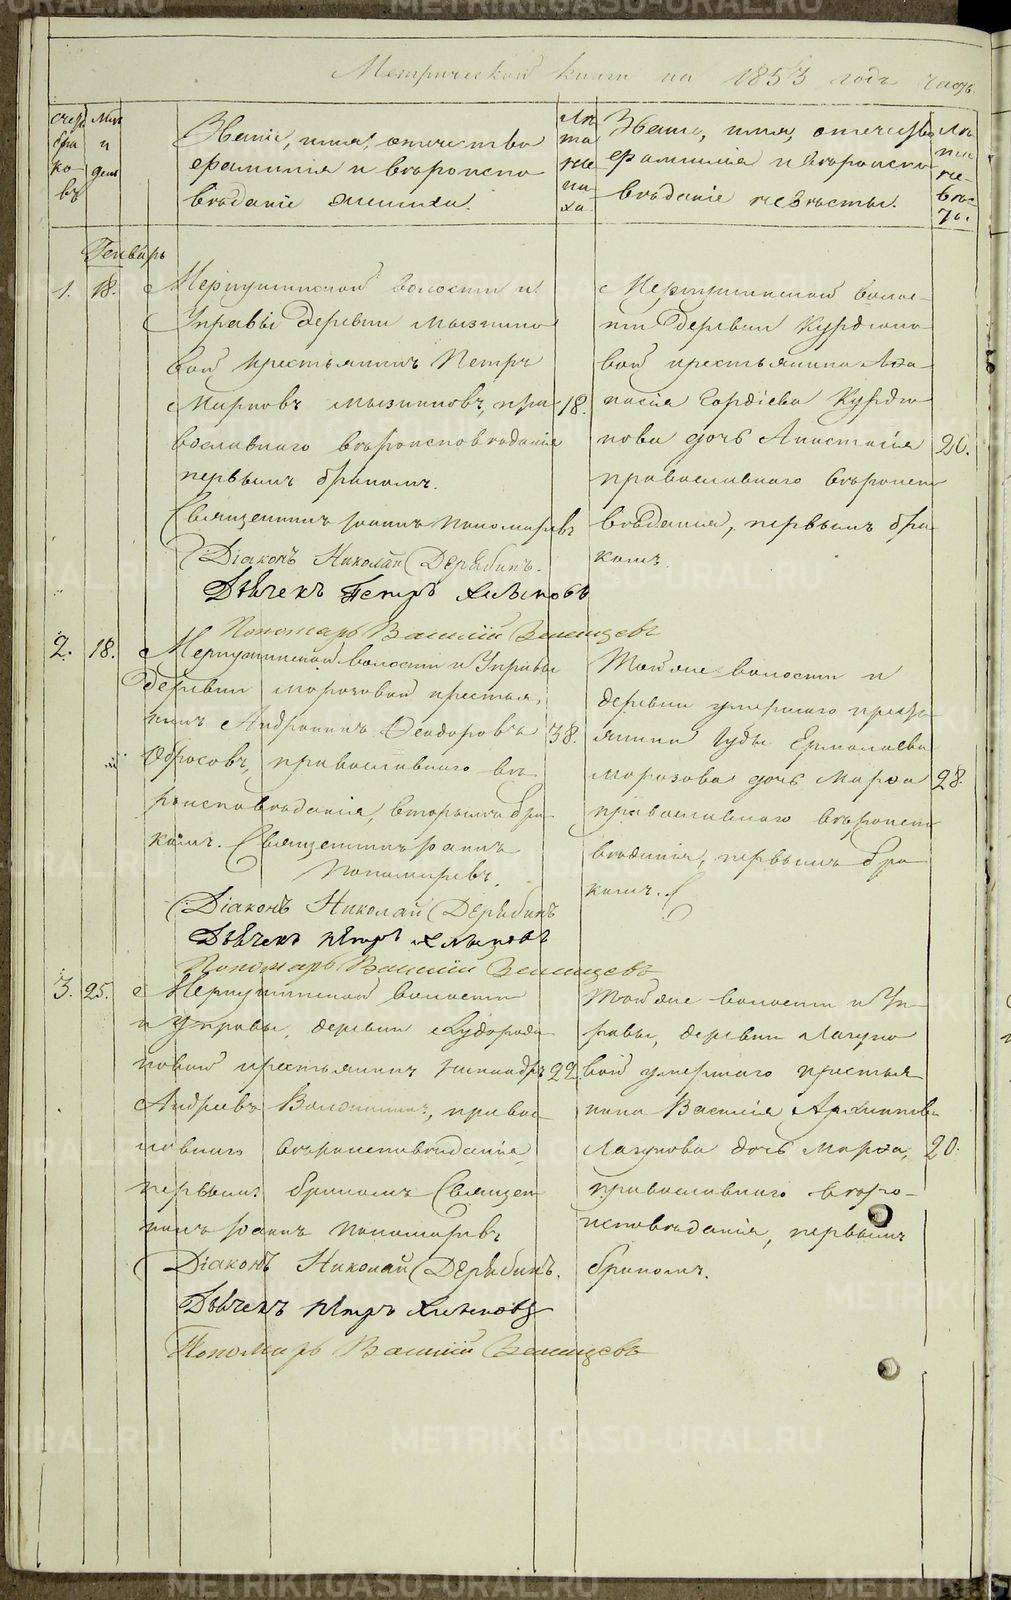 Метрической книги на 1853 годъ часть
счетъ бра ко въ
Мец и день
Званіе, имя, отечество
фамилія и вѣроиспо
вѣданіе жениха.
Лѣ та же ни ха.
Званіе, имя, отечество
фамилія и вѣроиспо
вѣданіе невѣсты.
Лѣ та не- вѣс- ты.
Генварь
1. 18.
Меркушинской волости и
Управы деревни
вой крестьянинъ Петръ
Марковъ пра 18.
вославнаго вѣроисповѣданія
первымъ бракомъ.
Священникъ Іоаннъ Пономаревъ
Діаконъ Николай Дерябинъ.
Дьячекъ Петръ
Пономарь Василій
Меркушинской волос-
ти деревни
вой крестьянина Афа-
насія Гордіева
нова дочь Анастасія 20.
православнаго вѣроиспо
вѣданія, первымъ бра
комъ.
2. 18.
Меркушинской волости и Управы
деревни Морозовой крестья
нинъ Андроникъ Феодоровъ 38.
православнаго вѣ
роисповѣданія, вторымъ бра
комъ. Священникъ Іоаннъ
Пономаревъ.
Діаконъ Николай Дерябинъ
Дьячекъ Петръ
Пономарь Василій
Той же волости и
деревни умершаго кресть
янина Іуды Ермолаева
Морозова дочь Марфа 28.
православнаго вѣроиспо
вѣданія, первымъ бра
комъ.
3. 25.
Меркушинской волости
и Управы, деревни
новой крестьянинъ Никандръ 22
Андреевъ правос
лавнаго вѣроисповѣданія,
первымъ бракомъ Священ
никъ Іоаннъ Пономаревъ
Діаконъ Николай Дерябинъ.
Дьячекъ Петръ
Пономарь Василій
Той же волости и Уп
равы, деревни Лагуно
вой умершаго крестья
нина Василія Архипова
Лагунова дочь Марфа, 20.
православнаго вѣро-
исповѣданія, первымъ
бракомъ.
METRIKI.GASO-URAL.RU